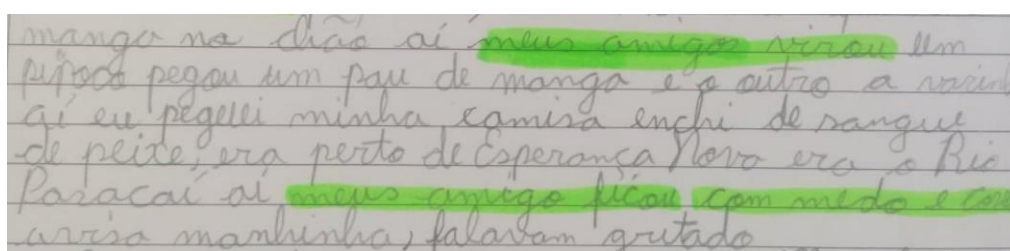 manga no chão aí meus amigos virou um
pegou um pau de manga e o outro a
aí eu peguei minha camisa enchi de sangue
de peixe, era perto de Esperança Nova era o Rio
Paracaí aí meus amigo ficou com medo e
avisa manhinha, falavam gritado